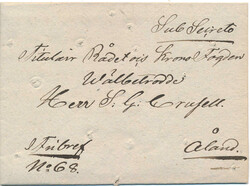 Sub Secreto
Titulair Rådet och Krono Fogden
Wälbetrodde
Herr S. G. Crusell.
Åland.
Fribref
No 68.